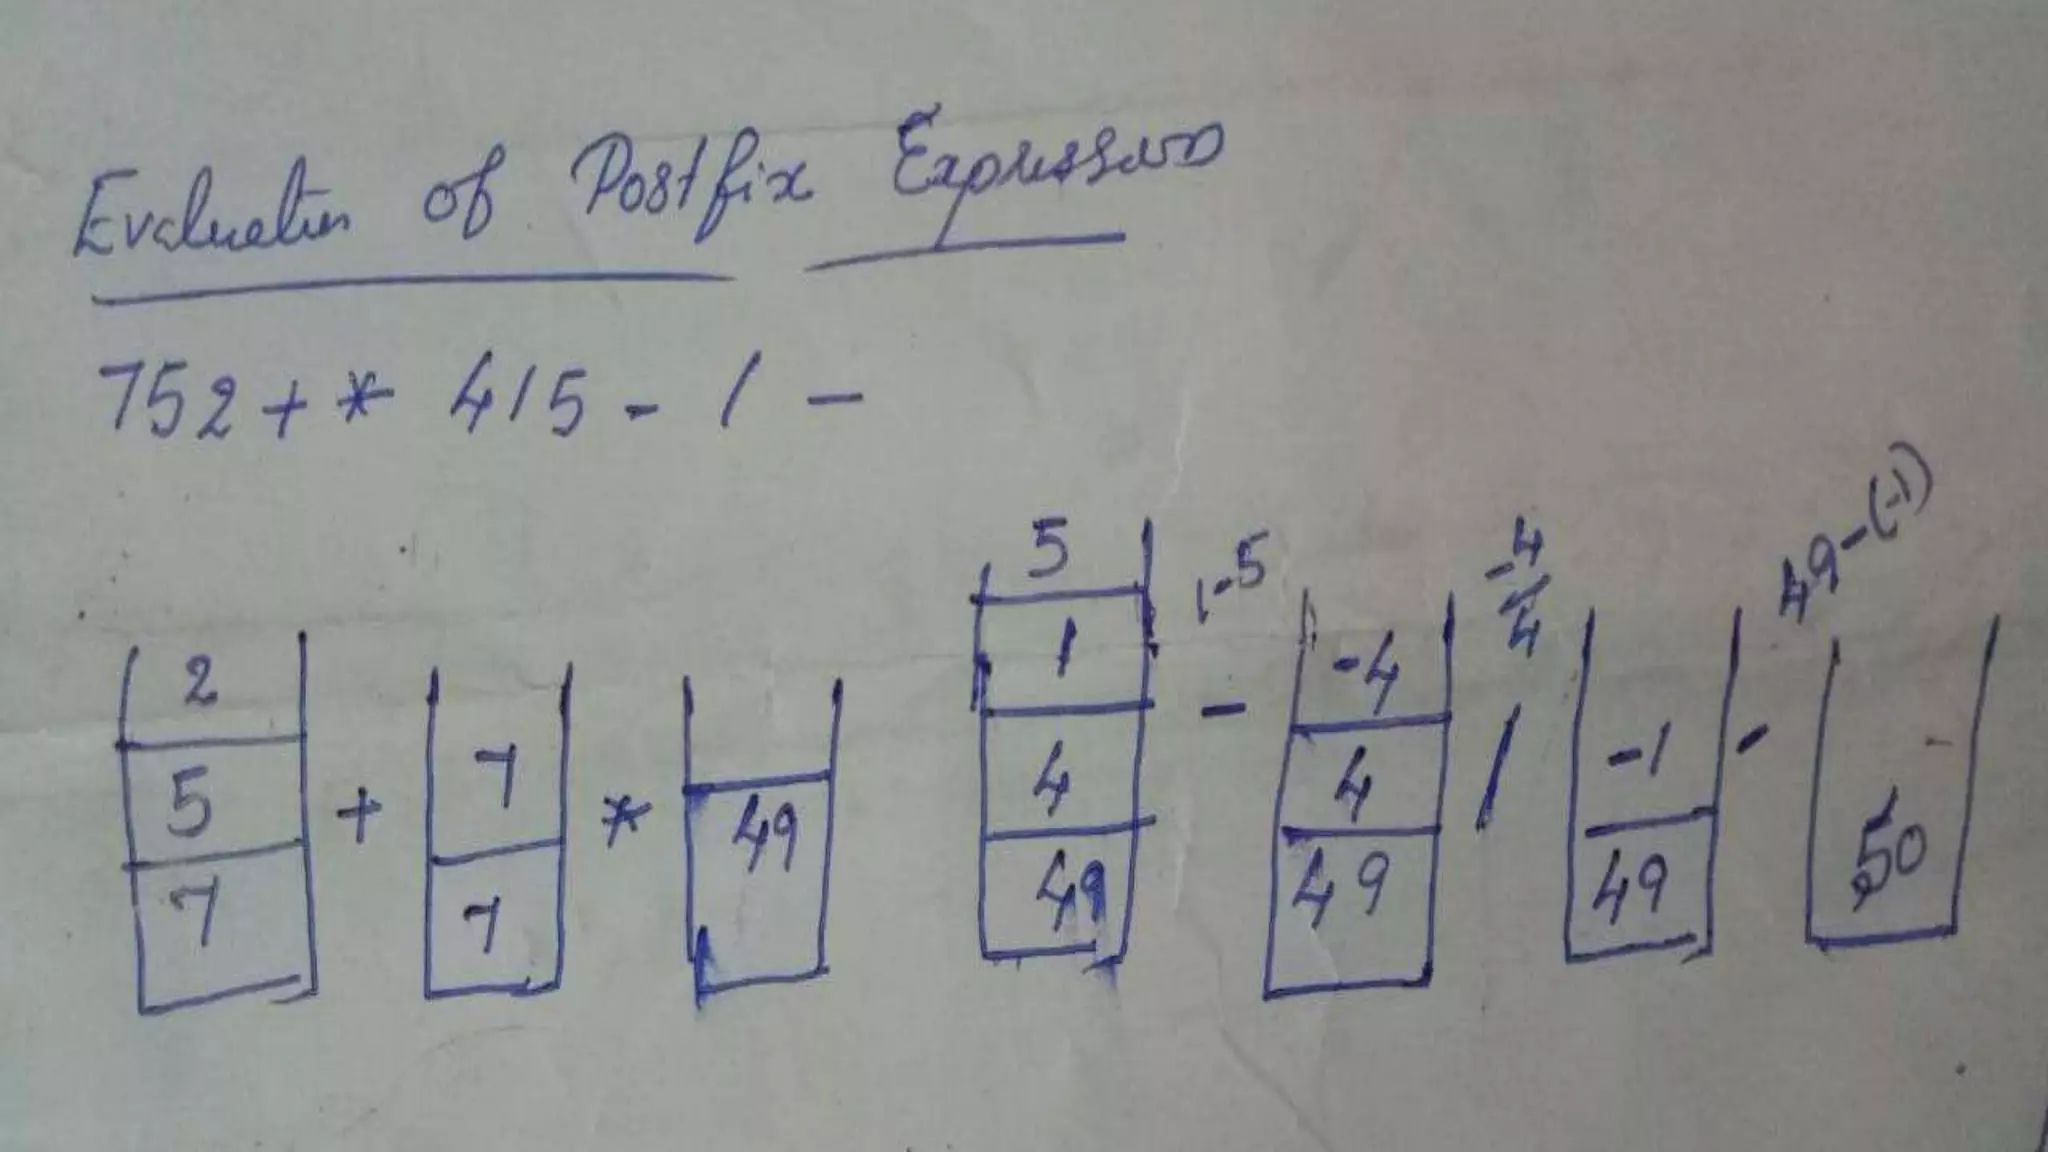 Evaluation of Postfix Expression
752+* 415- / -
2
5
7
+
7
7
*
49
5
1
4
49
1-5
-
-4
4
49
-4/4
/
-1
49
49-(-1)
-
50